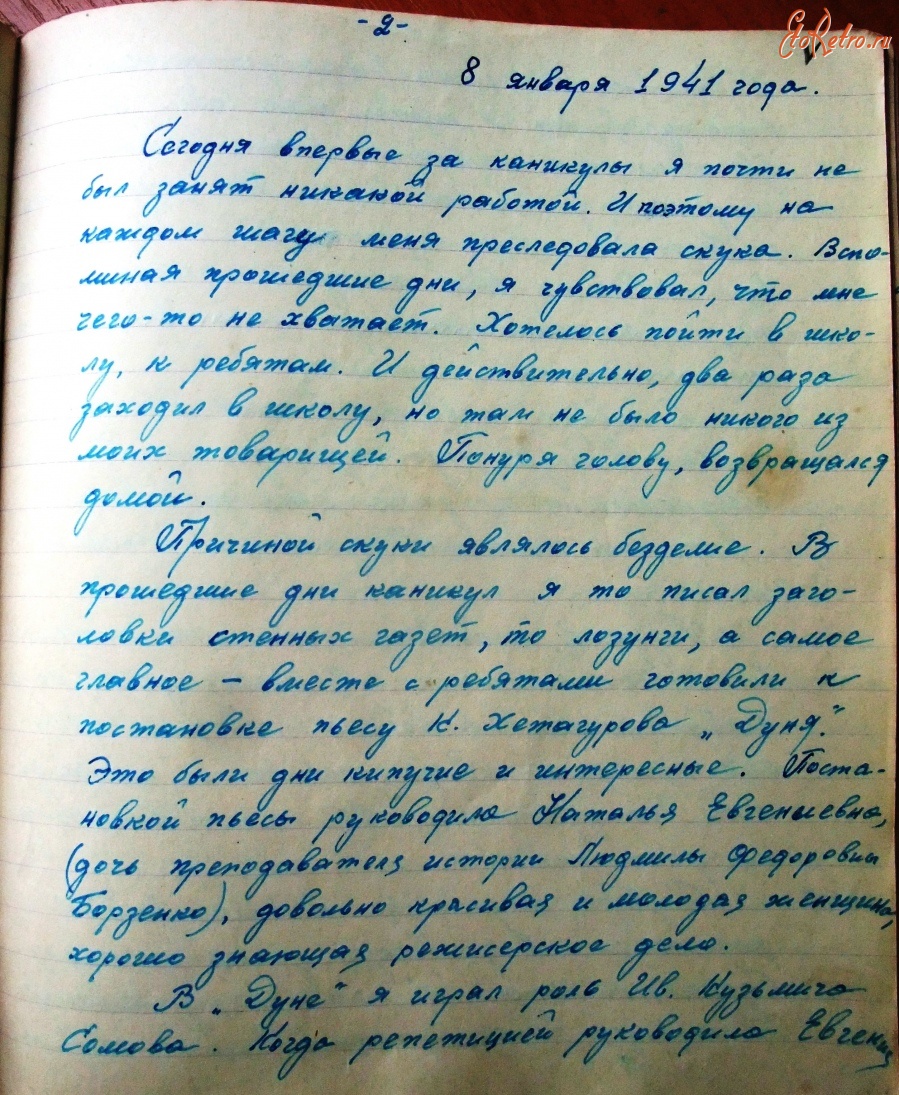 EtoRetro.ru
-2-
8 января 1941 года.
Сегодня впервые за каникулы я почти не
был занят никакой работой. И поэтому на
каждом шагу меня преследовала скука. Вспо-
миная прошедшие дни, я чувствовал, что мне
чего-то не хватает. Хотелось пойти в шко-
лу, к ребятам. И действительно, два раза
заходил в школу, но там не было никого из
моих товарищей. Понуря голову, возвращался
домой.
Причиной скуки являлось безделие. В
прошедшие дни каникул я то писал заго-
ловки стенных газет, то лозунги, а самое
главное – вместе с ребятами готовили к
постановке пьесу К. Хетагурова „Дуня".
Это были дни кипучие и интересные. Поста-
новкой пьесы руководила Наталья Евгениевна,
(дочь преподавателя истории Людмилы Федоровны
Борзенко), довольно красивая и молодая женщина,
хорошо знающая режисерское дело.
В „Дуне" я играл роль Ив. Кузьмича
Сомова. Когда репетицией руководила Евгения